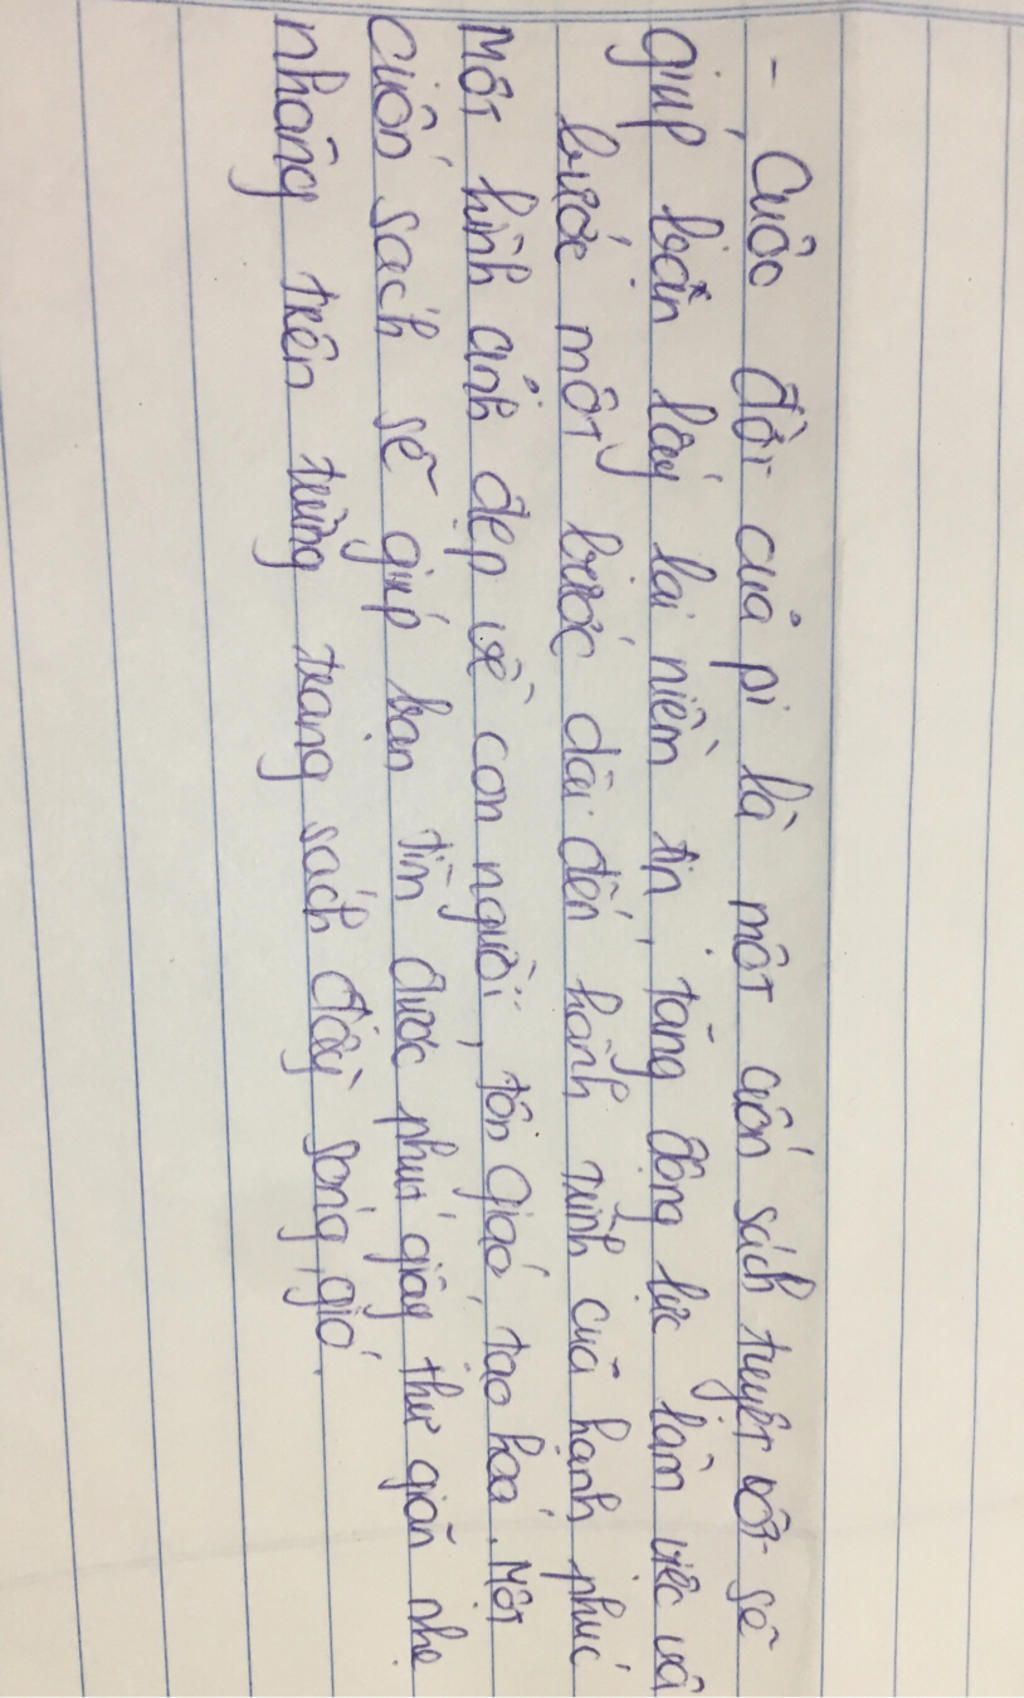 - Cuôc đời của pi là một cuốn sách tuyệt vời sẽ
giúp bạn lấy lại niềm tin, tăng động lực làm việc và
bước một bước dài đến hành trình của hạnh phúc
Một hình ảnh đẹp về con người, tôn giáo, tạo hoá. Một
cuốn sách sẽ giúp bạn tìm được phút giây thư giãn nhẹ
nhâng trên từng trang sách đầy sóng, gió.